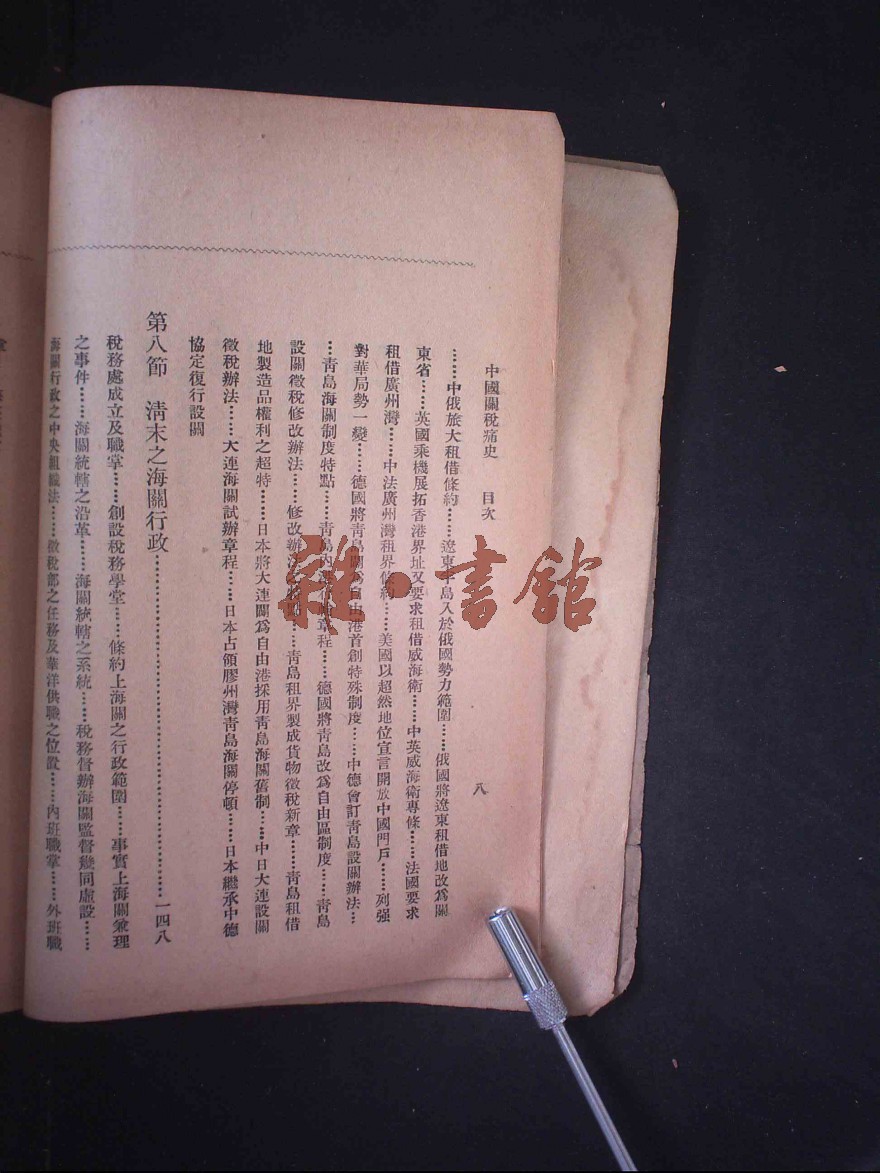 中國關稅痛史　目次
八
………中俄旅大租借條約……遼東半島入於俄國勢力範圍……俄國將遼東租借地改爲關
東省……英國乘機展拓香港界址又要求租借威海衛……中英威海衛專條……法國要求
租借廣州灣……中法廣州灣租界條約……美國以超然地位宣言開放中國門戶……列强
對華局勢一變……德國將青島關爲自由港首創特殊制度……中德會訂青島設關辦法…
…青島海關制度特點……青島內章程……德國將青島改爲自由區制度……青島
設關徵稅修改辦法……修改辦法點……青島租界製成貨物徵稅新章……青島租借
地製造品權利之超特……日本將大連關爲自由港採用青島海關舊制……中日大連設關
徵稅辦法……大連海關試辦章程……日本占領膠州灣青島海關停頓……日本繼承中德
協定復行設關
第八節　清末之海關行政……………………一四八
稅務處成立及職掌……創設稅務學堂……條約上海關之行政範圍……事實上海關兼理
之事件……海關統轄之沿革……海關統轄之系統……稅務督辦海關監督幾同虛設……
海關行政之中央組織法……徵稅部之任務及華洋供職之位置……內班職掌……外班職
雜·書館